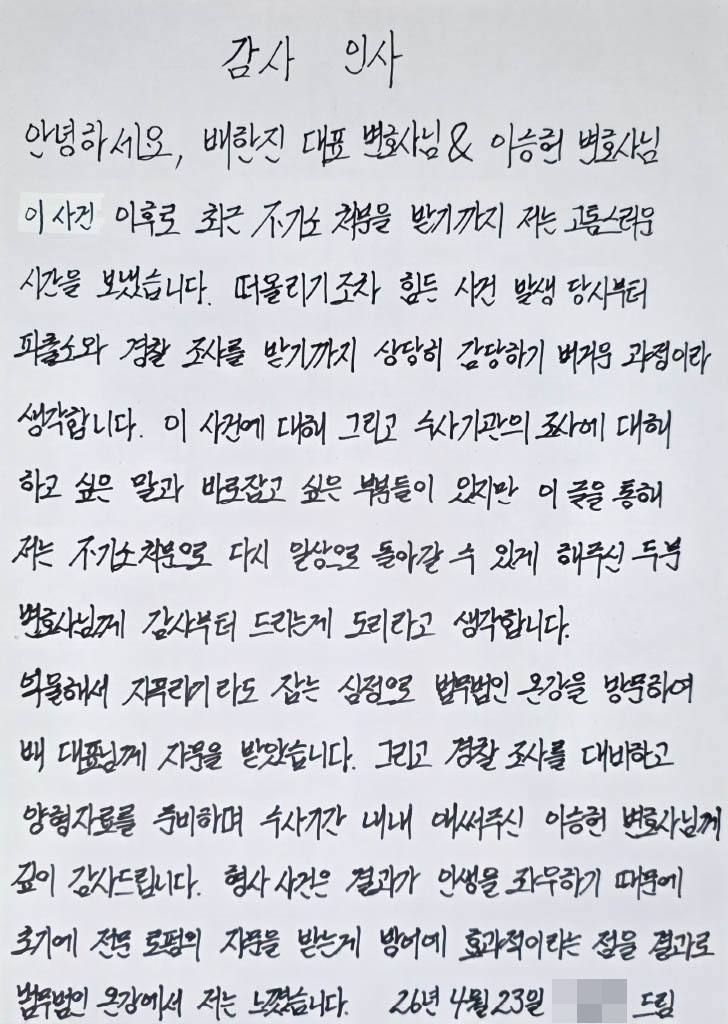 감사 인사
안녕하세요, 배한진 대표 변호사님 & 이승헌 변호사님
이 사건 이후로 최근 不기소 처분을 받기까지 저는 고통스러운
시간을 보냈습니다. 떠올리기조차 힘든 사건 발생 당시부터
파출소와 경찰 조사를 받기까지 상당히 감당하기 버거운 과정이라
생각합니다. 이 사건에 대해 그리고 수사기관의 조사에 대해
하고 싶은 말과 바로잡고 싶은 부분들이 있지만 이 글을 통해
저는 不기소처분으로 다시 일상으로 돌아갈 수 있게 해주신 두분
변호사님께 감사부터 드리는게 도리라고 생각합니다.
억울해서 지푸라기라도 잡는 심정으로 법무법인 온강을 방문하여
배 대표님께 자문을 받았습니다. 그리고 경찰 조사를 대비하고
양형자료를 준비하며 수사기간 내내 애써주신 이승헌 변호사님께
깊이 감사드립니다. 형사 사건은 결과가 인생을 좌우하기 때문에
초기에 전문 로펌의 자문을 받는게 방어에 효과적이라는 점을 결과로
법무법인 온강에서 저는 느꼈습니다. 26년 4월 23일 드림